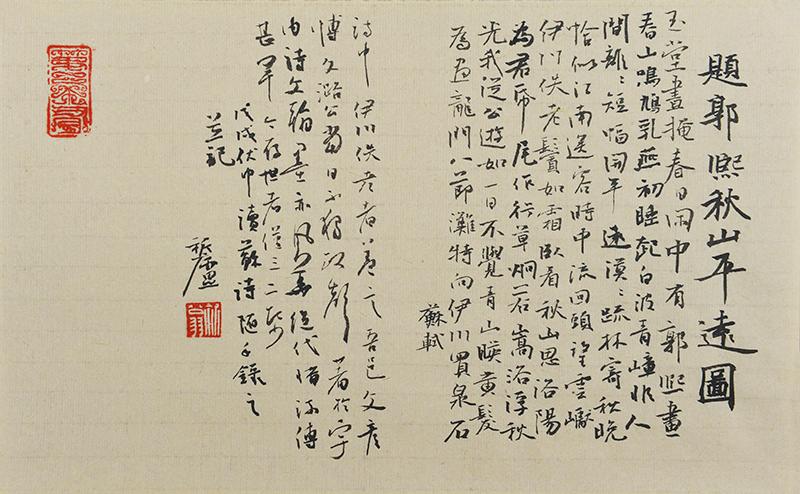 題郭熙秋山平遠圖
玉堂晝掩春日閑中有郭熙畫
春山鳴鳩乳燕初睡起白波青嶂非人
間離離短幅開平遠漠漠疏林寄秋晚
恰似江南送客時中流回頭望雲巘
伊川佚老鬢如霜臥看秋山思洛陽
為君帋尾作行草炯若嵩洛浮秋
光我從公遊如一日不覺青山映黃髮
為畫龍門八節灘特向伊川買泉石
蘇軾
詩中伊川佚老者蓋之吾邑文彥
博文潞公當日不獨政聲著於宇
內詩文翰墨亦風絕代惜流傳
甚罕今存世者僅三二帋
戊戌伏中讀蘇詩隨手錄之
並記